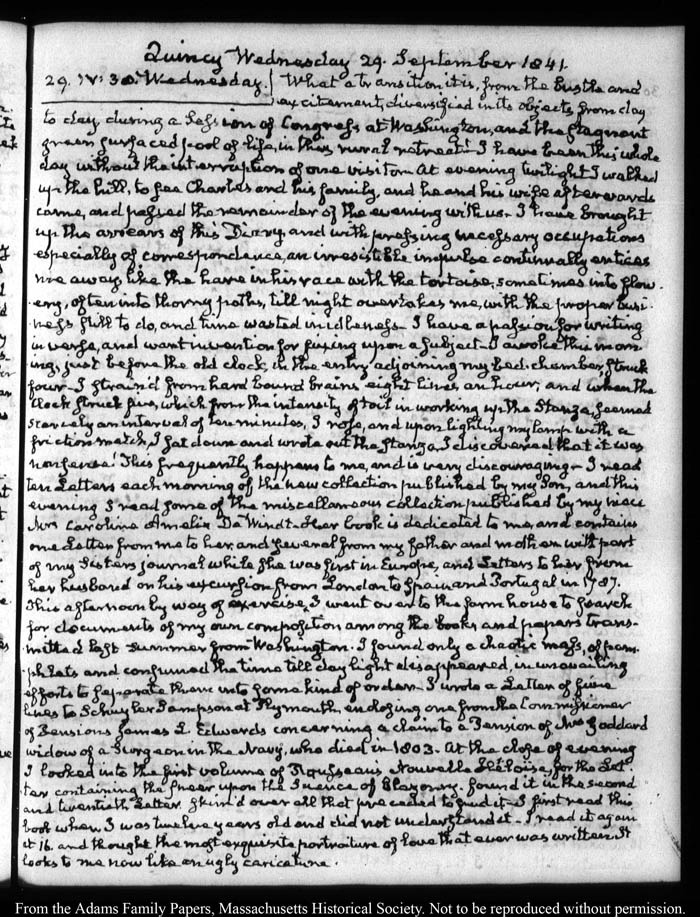 Quincy Wednesday 29. September 1841.
29. IV: 30. Wednesday. What a transition it is, from the bustle and
excitement, diversified in its objects, from day
to day, during a Session of Congress at Washington, and the stagnant
green surfaced pool of life, in this rural retreat. I have been this whole
day without the interruption of one visitor. At evening twilight I walked
up the hill, to see Charles and his family, and he and his wife afterwards
came, and passed the remainder of the evening with us. I have brought
up the arrears of this Diary, and with pressing necessary occupations
especially of correspondence, an irresistible impulse continually entices
me away, like the hare in his race with the tortoise, sometimes into flow-
ery, often into thorny paths, till night overtakes me, with the proper busi-
ness still to do, and time wasted in idleness. I have a passion for writing
in verse, and want invention for fixing upon a subject. I awoke this morn-
ing, just before the old clock, in the entry adjoining my bed-chamber, struck
four. I strain'd from hard bound brains eight lines an hour; and when the
Clock struck five, which from the intensity of toil in working up the Stanza, seemed
scarcely an interval of ten minutes, I rose, and upon lighting my lamp with a
friction match, I sat down and wrote out the Stanza, I discovered that it was
nonsense. This frequently happens to me, and is very discouraging. I read
ten Letters each morning of the new collection published by my Son, and this
evening I read some of the miscellaneous collection published by my niece
Mrs Caroline Amelia De Windt. Her book is dedicated to me, and contains
one Letter from me to her, and several from my father and mother with part
of my Sisters Journal while she was first in Europe, and Letters to her from
her husband on his excursion from London to Spain and Portugal in 1787.
This afternoon by way of exercise, I went over to the farm house to search
for documents of my own composition among the books and papers trans-
mitted last Summer from Washington. I found only a chaotic mass, of pam-
phlets and consumed the time till day light disappeared, in unavailing
efforts to separate them into some kind of order. I wrote a Letter of five
lines to Schuyler Sampson at Plymouth, enclosing one from the Commissioner
of Pensions James L. Edwards concerning a claim to a Pension of Mrs Goddard
widow of a Surgeon in the Navy, who died in 1803. At the close of evening
I looked into the first volume of Rousseau's Nouvelle Héloïse, for the Let-
ter containing the sneer upon the Science of Blazonry. found it in the second
and twentieth Letter. Skim'd over all that preceded to find it. I first read this
book when I was twelve years old and did not understand it. I read it again
at 16. and thought the most exquisite portraiture of love that ever was written. It
looks to me now like an ugly caricature.
From the Adams Family Papers, Massachusetts Historical Society. Not to be reproduced without permission.